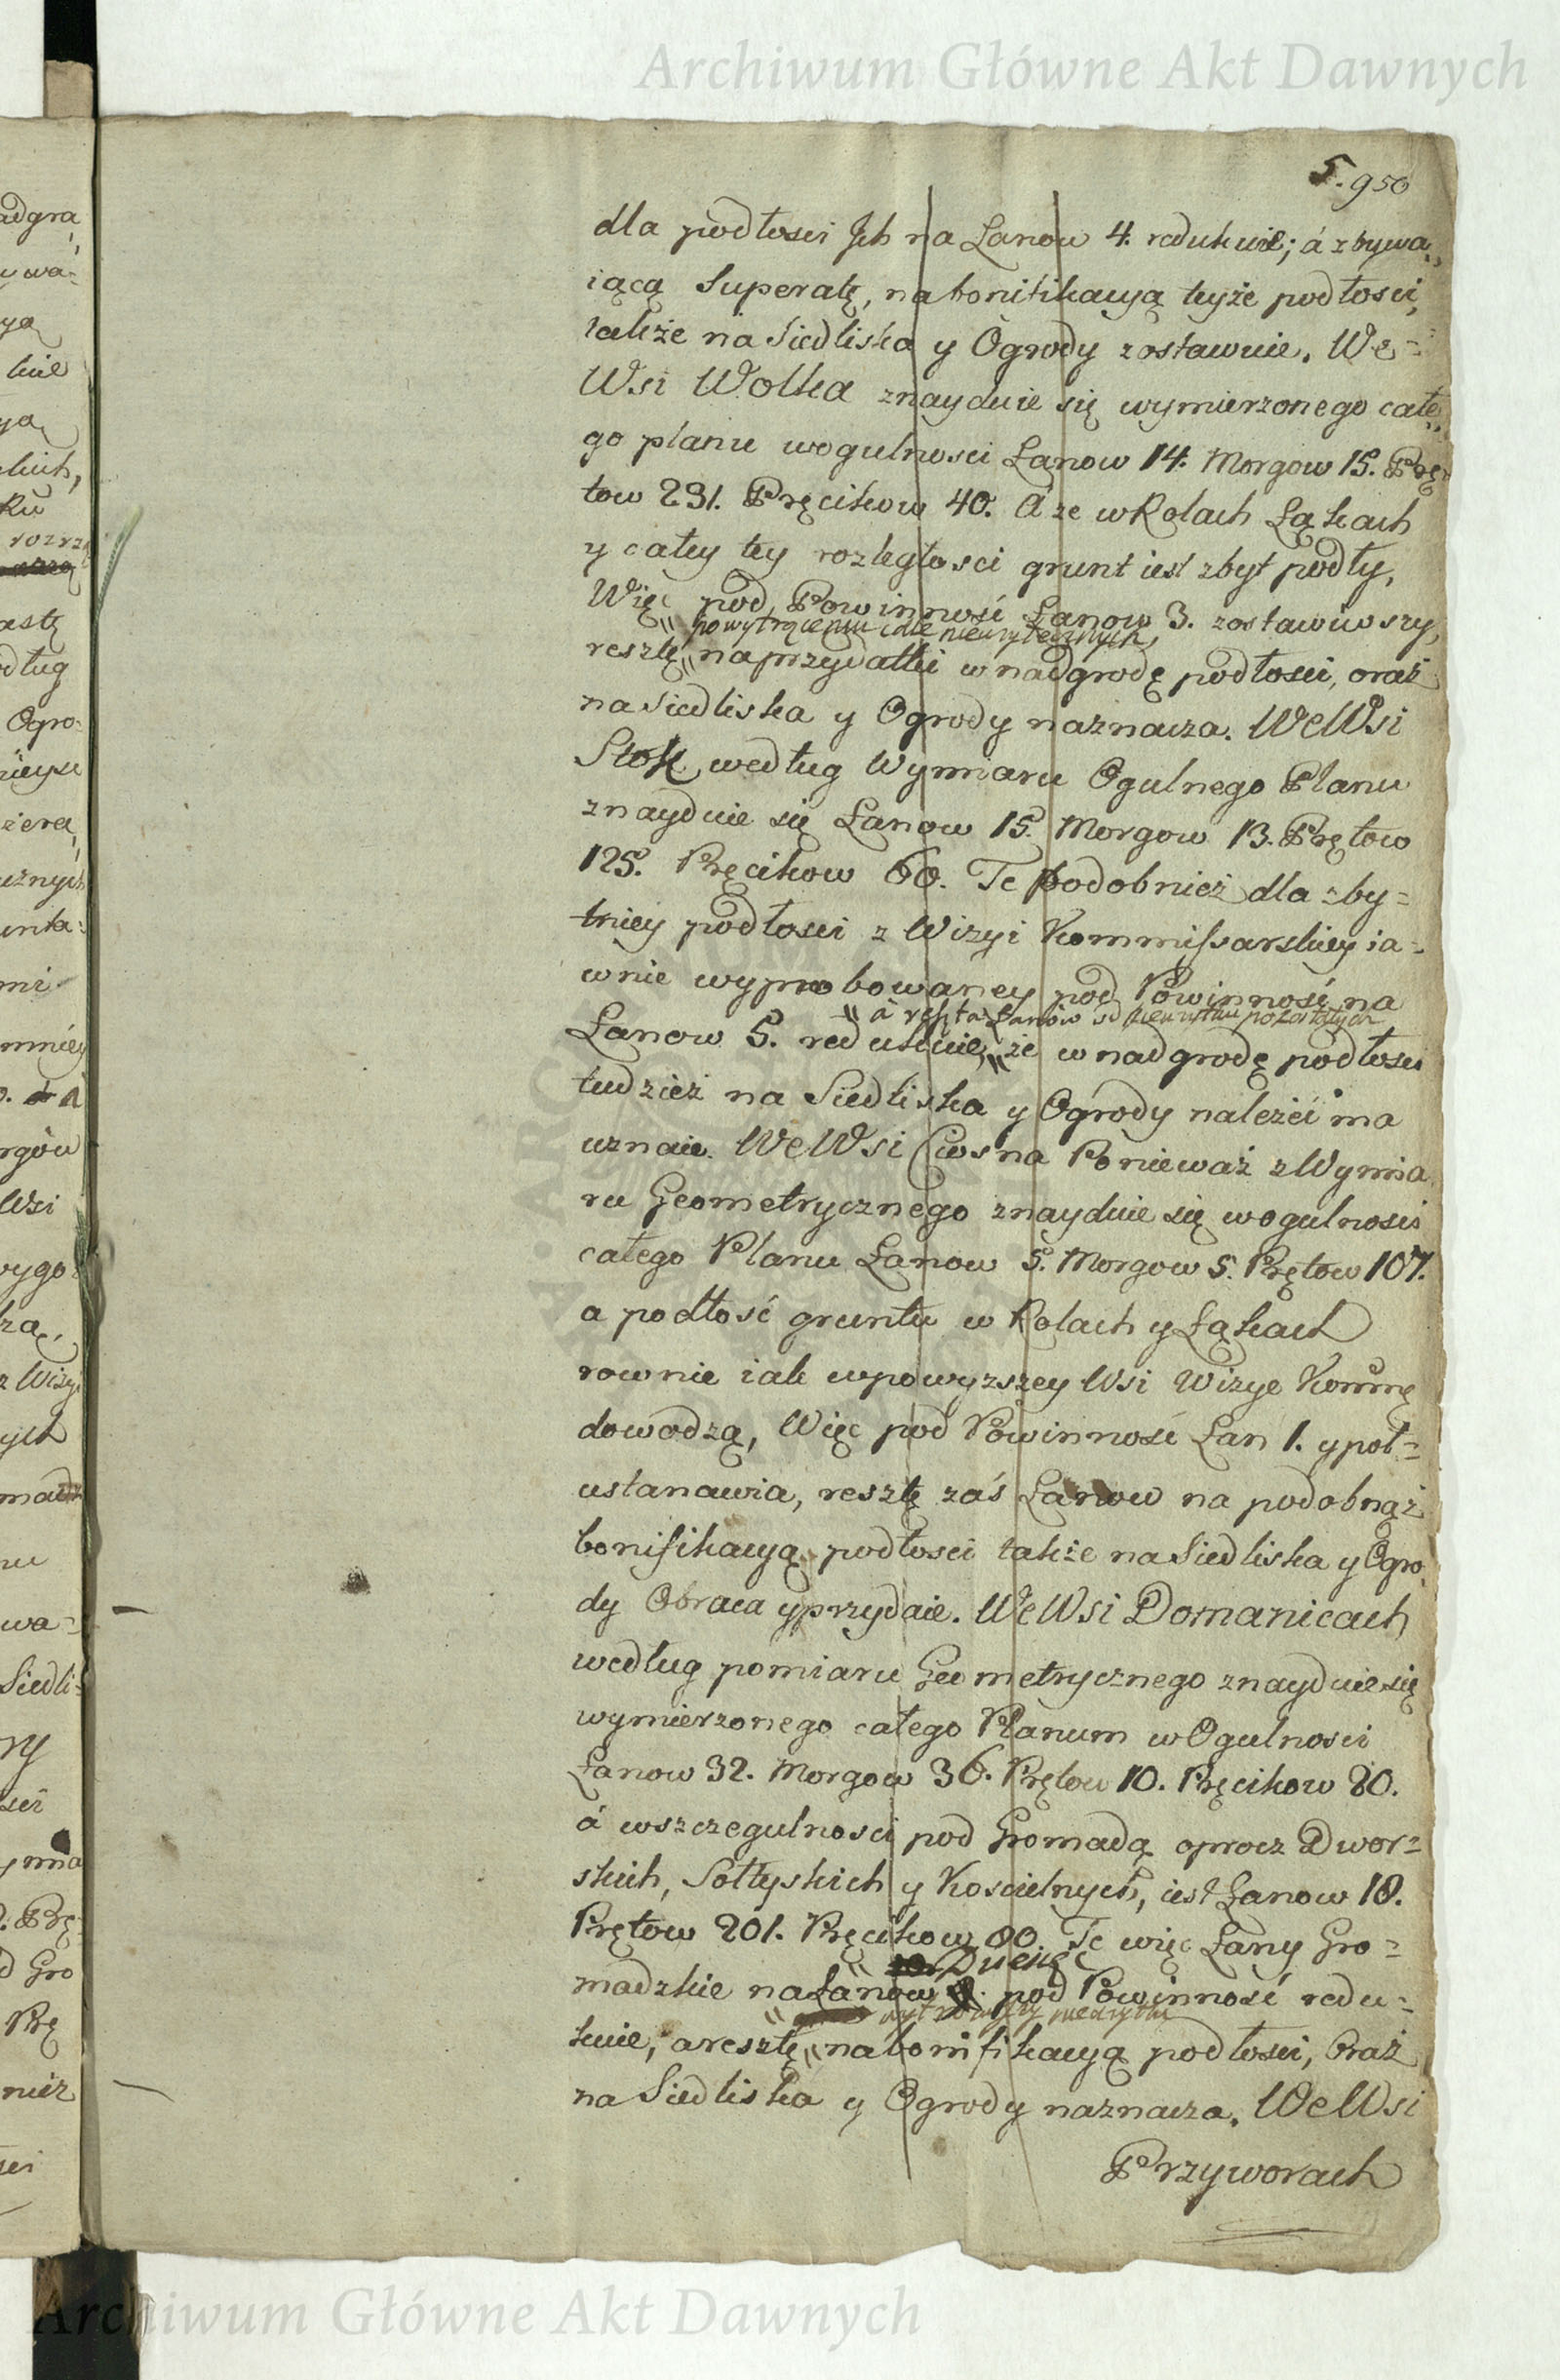 Archiwum Główne Akt Dawnych
5. 950
dla podłosci Jch na Łanow 4. redukuie; á zbywa„
iącą Superatę, na bonifikacyą teyże podłosci,
także na Siedliska y Ogrody zostawuie. We=
Wsi Wolka znayduie się wymierzonego całe„
go planu wogulnosci Łanow 14. Morgow 15. Prę„
tow 291. Pręcikow 40. A że w Rolach Łąkach
y całey tey rozległosci grunt iest zbyt podły,
Więc pod Powinność Łanow 3. zostawiwszy,
powytrąceniu cale nieużytecznych,
resztę „ na przydatki w nadgrodę podłosci, oraz
na Siedliska y Ogrody naznacza. We Wsi
Stok według Wymiaru Ogulnego Planu
znayduie się Łanow 15. Morgow 13. Prętow
125. Pręcikow 60. Te podobnież dla zby=
tniey podłosci z Wizyi Kommissarskiey ia=
wnie wyprobowaney pod Powinność na
„ á reszta Łanów od nieużytku pozostałych
Łanow 5. redukuie, „ że w nadgrodę podłosci
tudzież na Siedliska y Ogrody należeć ma
uznaie. We Wsi Ciosna Ponieważ z Wymia
ru Geometrycznego znayduie się wogulnosci
całego Planu Łanow 5. Morgow 5. Prętow 107.
a podłość gruntu w Rolach y Łąkach
rownie iak wpowyzszey Wsi Wizye Kommę
dowodzą, Więc pod Powinność Łan 1. y poł=
ustanawia, resztę zaś Łanow na podobnąż
bonifikacyą podłosci także na Siedliska y Ogro„
dy Obraca y przydaie. We Wsi Domanicach
według pomiaru Geometrycznego znayduie się
wymierzonego całego Planum w Ogulnosci
Łanow 32. Morgow 36. Prętow 10. Pręcikow 20.
á wszczegulnosci pod Gromadą oprocz Dwor=
skich, Sołtyskich y Koscielnych, iest Łanow 18.
Prętow 201. Pręcikow 80. Te więc Łany Gro=
Dziesięć
madzkie na Łanow pod Powinność redu=
wytrąciwszy nieużytki
kuie, a resztę „ na bonifikacyą podłosci, Oraz
na Siedliska y Ogrody naznacza. We Wsi
Przyworach
Archiwum Główne Akt Dawnych